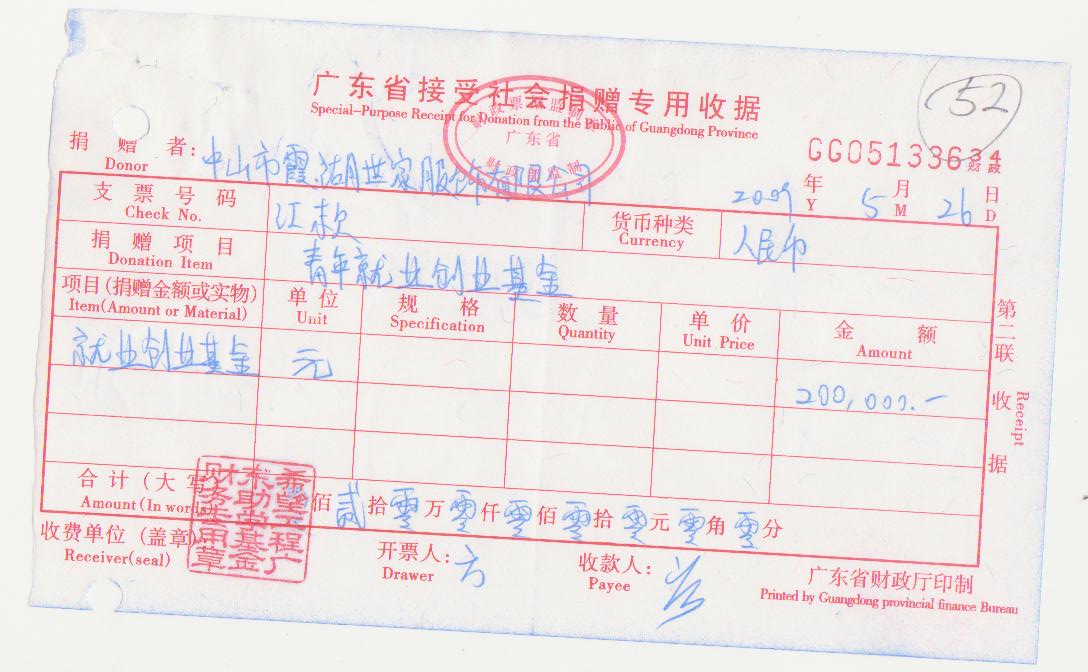 52
广东省接受社会捐赠专用收据
Special-Purpose Receipt for Donation from the Public of Guangdong Province
财政票据监制
广东省
财政部监制
GG05133634
财政
捐赠者：中山市霞湖世家服饰有限公司
Donor
2009年5月26日
Y M D
支票号码 江款 货币种类 人民币
Check No. Currency
捐赠项目 青年就业创业基金
Donation Item
项目(捐赠金额或实物) 单位 规格 数量 单价 金额
Item(Amount or Material) Unit Specification Quantity Unit Price Amount
就业创业基金 元 200,000.-
合计(大写) 佰贰拾零万零仟零佰零拾零元零角零分
Amount(In words)
收费单位(盖章) 开票人：方 收款人：
Receiver(seal) Drawer Payee
希望工程广东助学基金财务专用章
广东省财政厅印制
Printed by Guangdong provincial finance Bureau
第二联 收据
Receipt